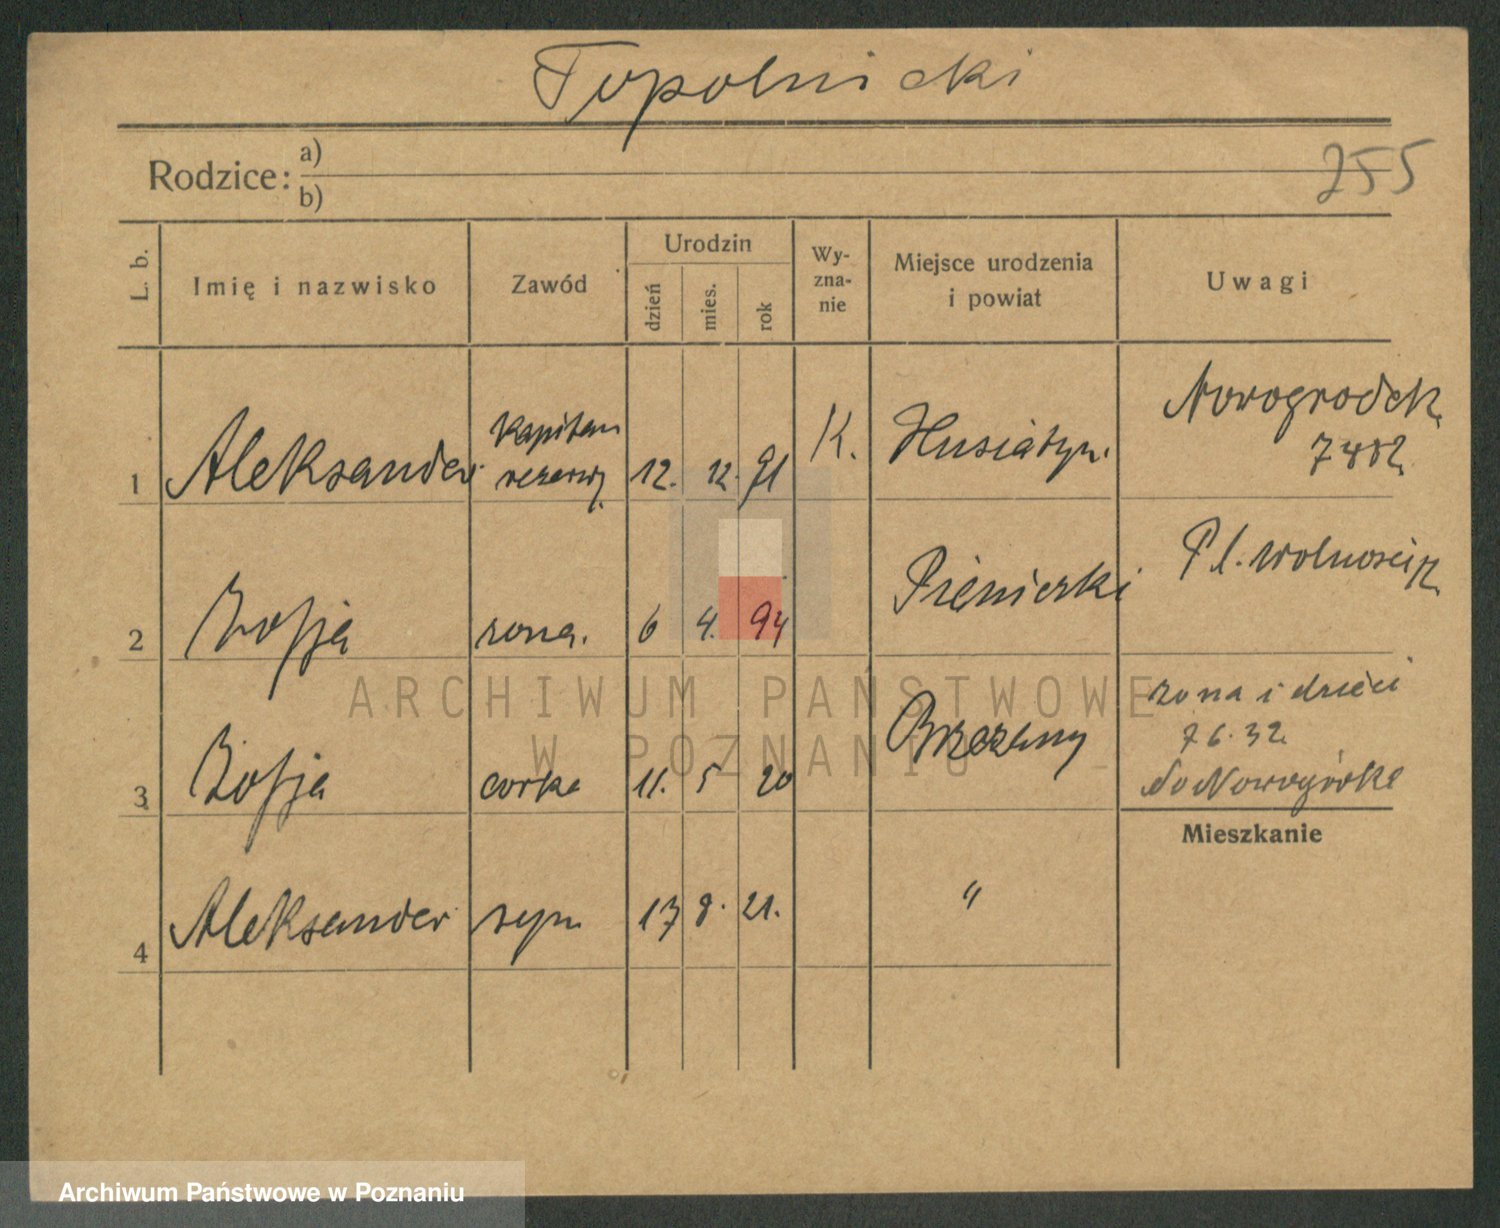 Topolnicki
Rodzice: a)
b)
255
L. b.
Imię i nazwisko
Zawód
Urodzin
dzień
mies.
rok
Wy-
zna-
nie
Miejsce urodzenia
i powiat
Uwagi
1 Aleksander kapitan rezerwy 12. 12. 91 K. Husiatyn. Nowogrodek
2 Zofja zona. 6 4. 94 Pienierki Pl. Wolności
3 Zofja corka 11. 5 20 Brzezany zona i dzieci
7 6. 32
do Nowogródka
Mieszkanie
4 Aleksander syn 17 8. 21. "
ARCHIWUM PAŃSTWOWE
W POZNANIU
Archiwum Państwowe w Poznaniu